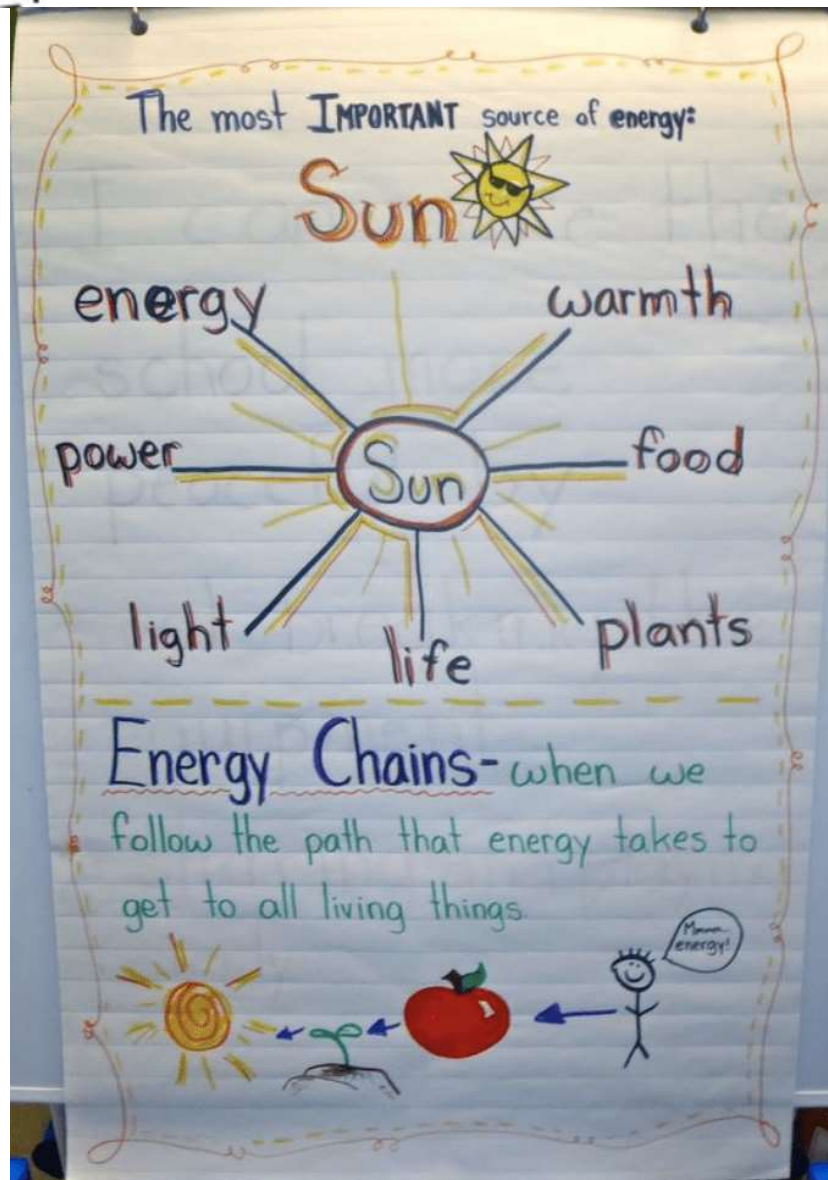 The most IMPORTANT source of energy:
Sun
energy
warmth
power
Sun
food
light
life
plants
Energy Chains- when we
follow the path that energy takes to
get to all living things.
energy!